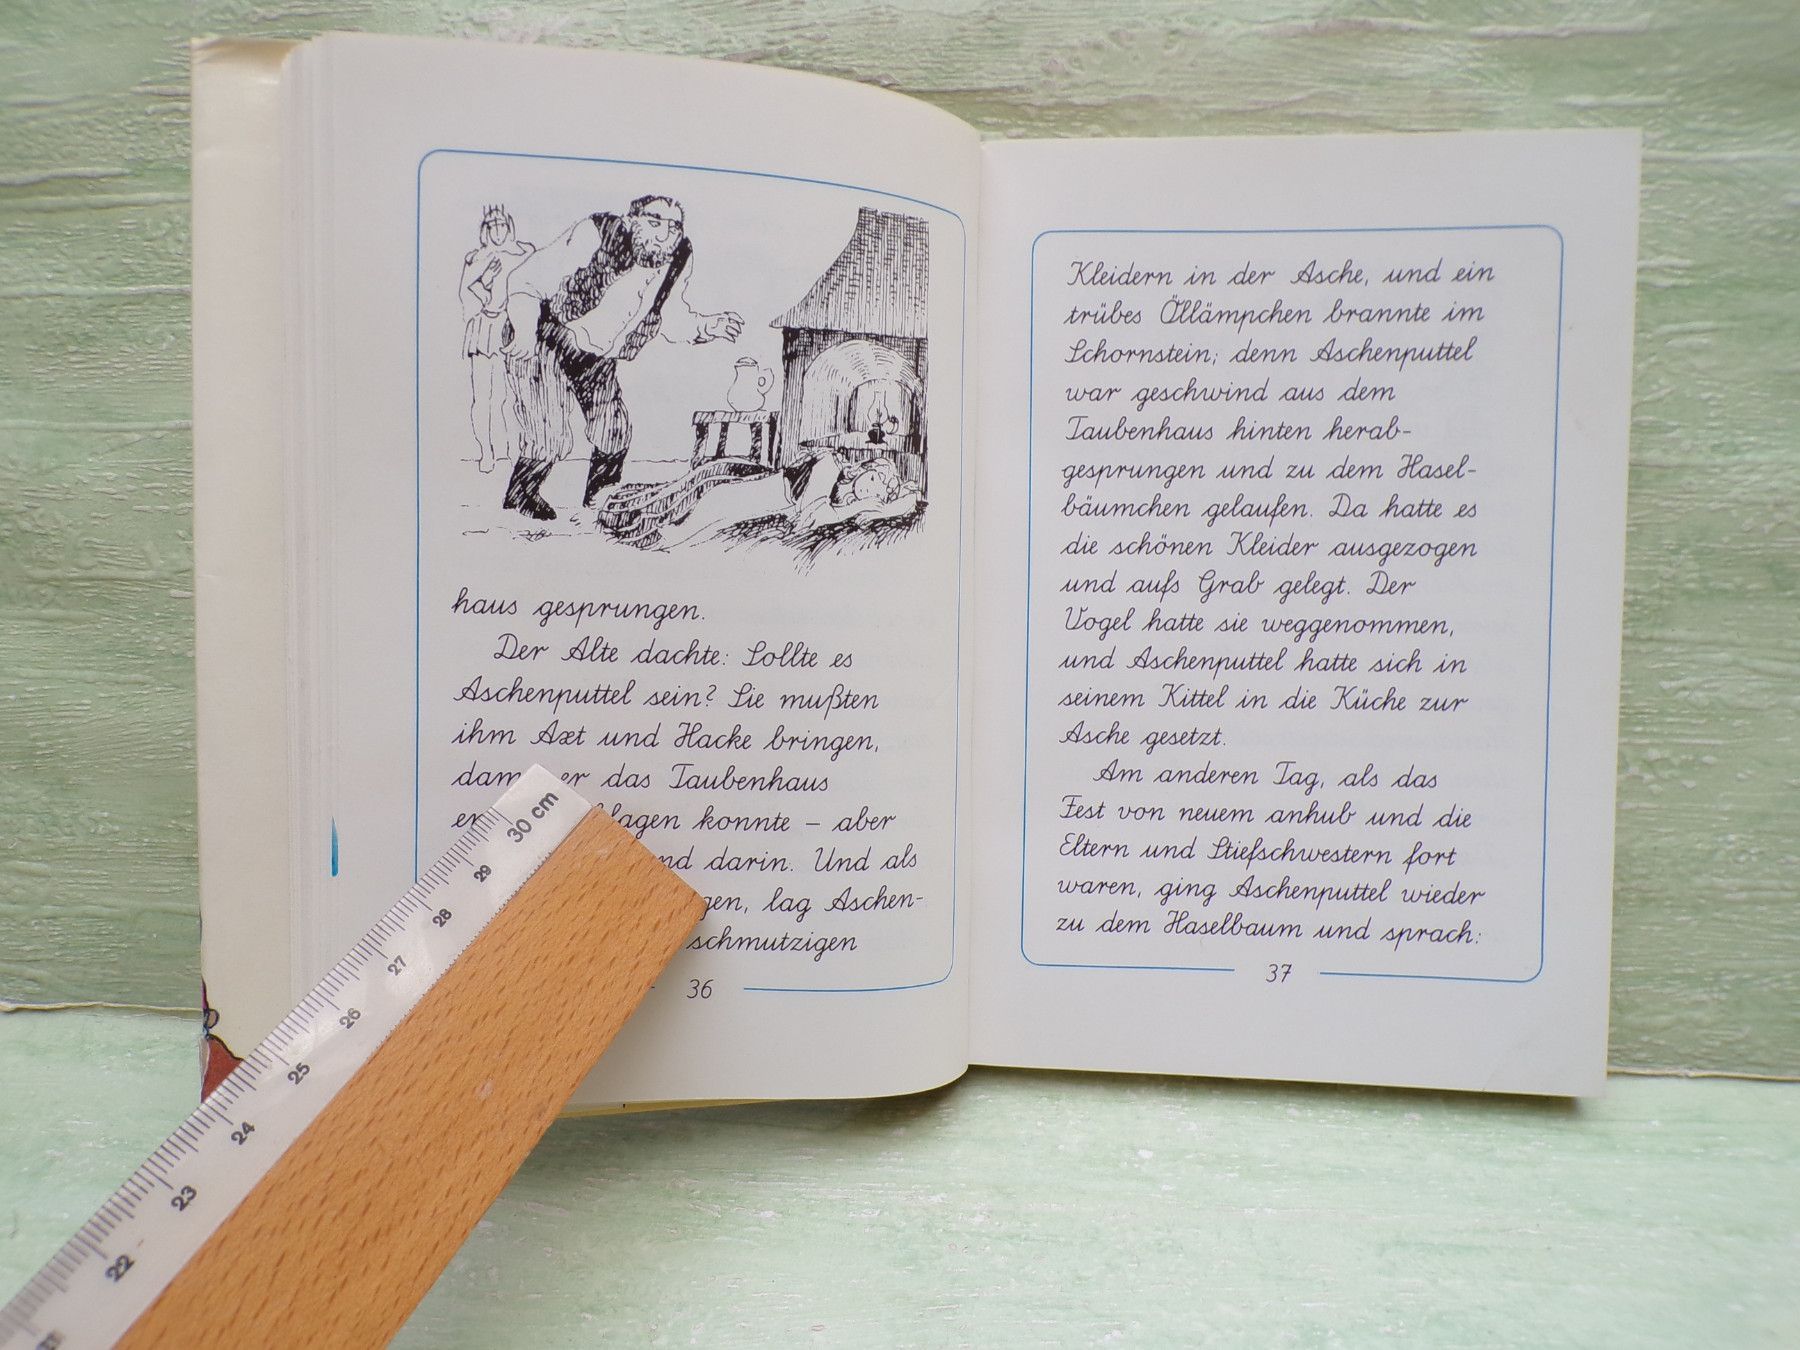 haus gesprungen.
Der Alte dachte: Sollte es
Aschenputtel sein? Sie mußten
ihm Axt und Hacke bringen,
das Taubenhaus
konnte – aber
darin. Und als
lag Aschen-
schmutzigen
36
Kleidern in der Asche, und ein
trübes Öllämpchen brannte im
Schornstein; denn Aschenputtel
war geschwind aus dem
Taubenhaus hinten herab-
gesprungen und zu dem Hasel-
bäumchen gelaufen. Da hatte es
die schönen Kleider ausgezogen
und aufs Grab gelegt. Der
Vogel hatte sie weggenommen,
und Aschenputtel hatte sich in
seinem Kittel in die Küche zur
Asche gesetzt.
Am anderen Tag, als das
Fest von neuem anhub und die
Eltern und Stiefschwestern fort
waren, ging Aschenputtel wieder
zu dem Haselbaum und sprach:
37
30 cm
29
28
27
26
25
24
23
22